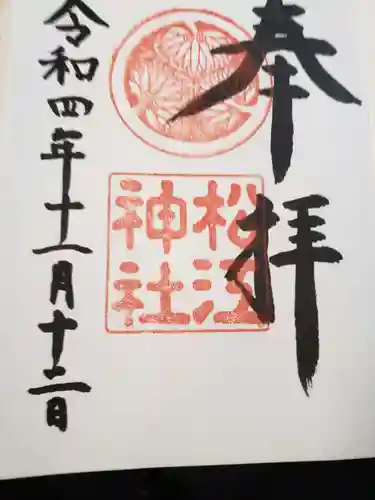 奉拝
松江
神社
令和四年十一月十二日